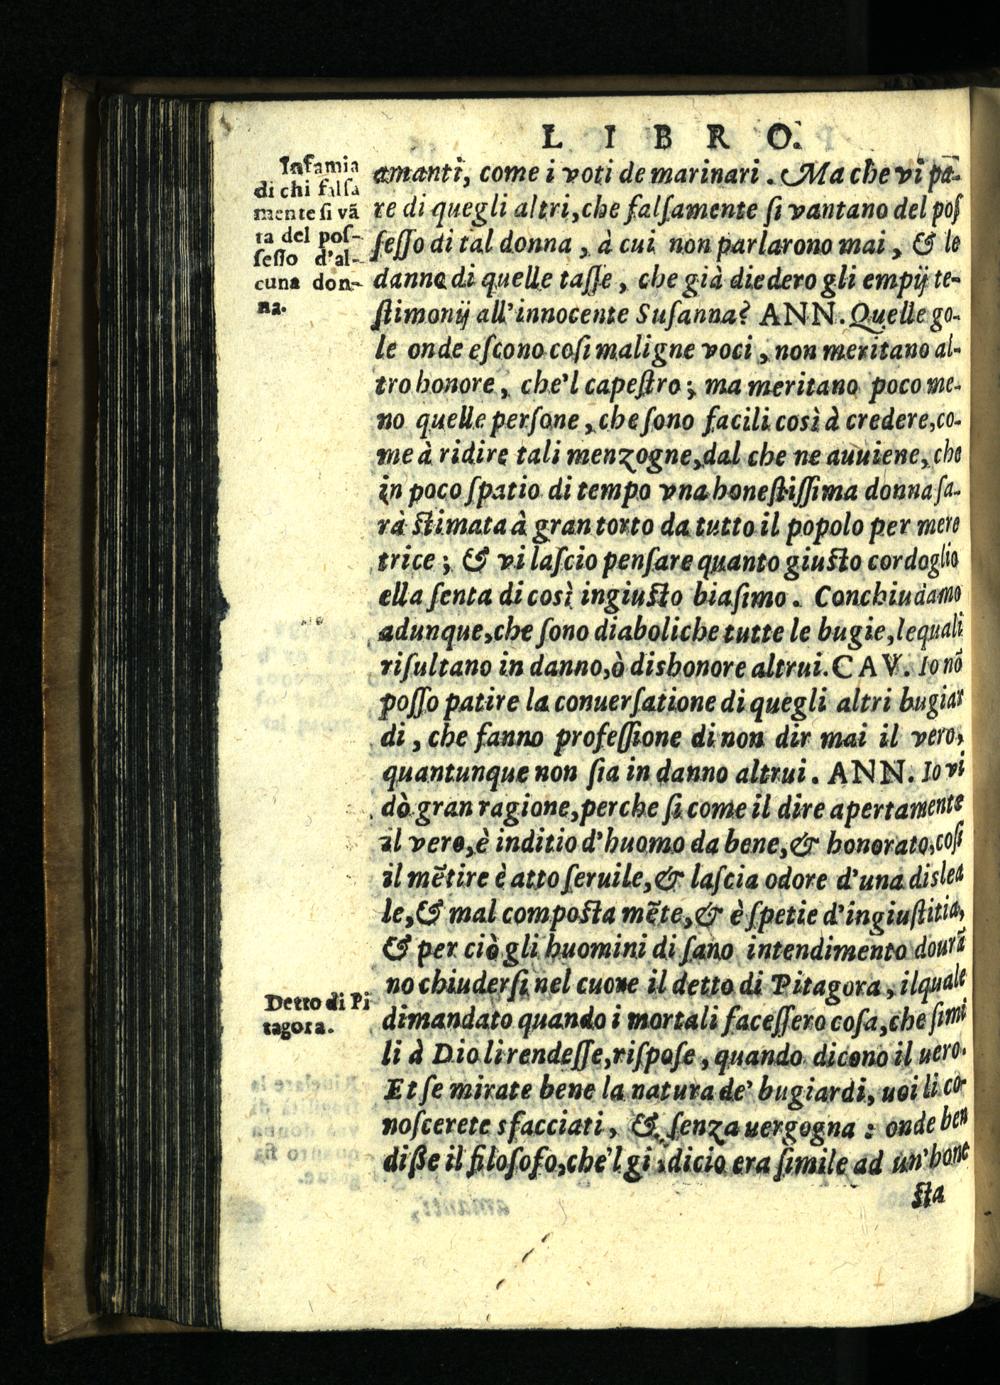 LIBRO.
Infamia
di chi falsa
mente si vã
ta del pos-
sesso d'al-
cuna don-
na.
amanti, come i voti de marinari. Ma che vi pa-
re di quegli altri, che falsamente si vantano del pos
sesso di tal donna, à cui non parlarono mai, & le
danno di quelle tasse, che già diedero gli empij te-
stimonij all'innocente Susanna? ANN. Quelle go-
le onde escono cosi maligne voci, non meritano al-
tro honore, che'l capestro; ma meritano poco me-
no quelle persone, che sono facili così à credere, co-
me à ridire tali menzogne, dal che ne auuiene, che
in poco spatio di tempo vna honestissima donna sa-
rà stimata à gran torto da tutto il popolo per mere
trice; & vi lascio pensare quanto giusto cordoglio
ella senta di così ingiusto biasimo. Conchiudamo
adunque, che sono diaboliche tutte le bugie, lequali
risultano in danno, ò dishonore altrui. CAV. Io nõ
posso patire la conuersatione di quegli altri bugiar
di, che fanno professione di non dir mai il vero,
quantunque non sia in danno altrui. ANN. Io vi
dò gran ragione, perche si come il dire apertamente
il vero, è inditio d'huomo da bene, & honorato, cosi
il mẽtire è atto seruile, & lascia odore d'una dislea
le, & mal composta mẽte, & è spetie d'ingiustitia,
& per ciò gli huomini di sano intendimento dourã
no chiudersi nel cuore il detto di Pitagora, ilquale
Detto di Pi
tagora.
dimandato quando i mortali facessero cosa, che simi
li à Dio li rendesse, rispose, quando dicono il uero.
Et se mirate bene la natura de' bugiardi, uoi li co-
noscerete sfacciati, & senza uergogna: onde ben
disse il filosofo, che'l giudicio era simile ad un'hone
sta